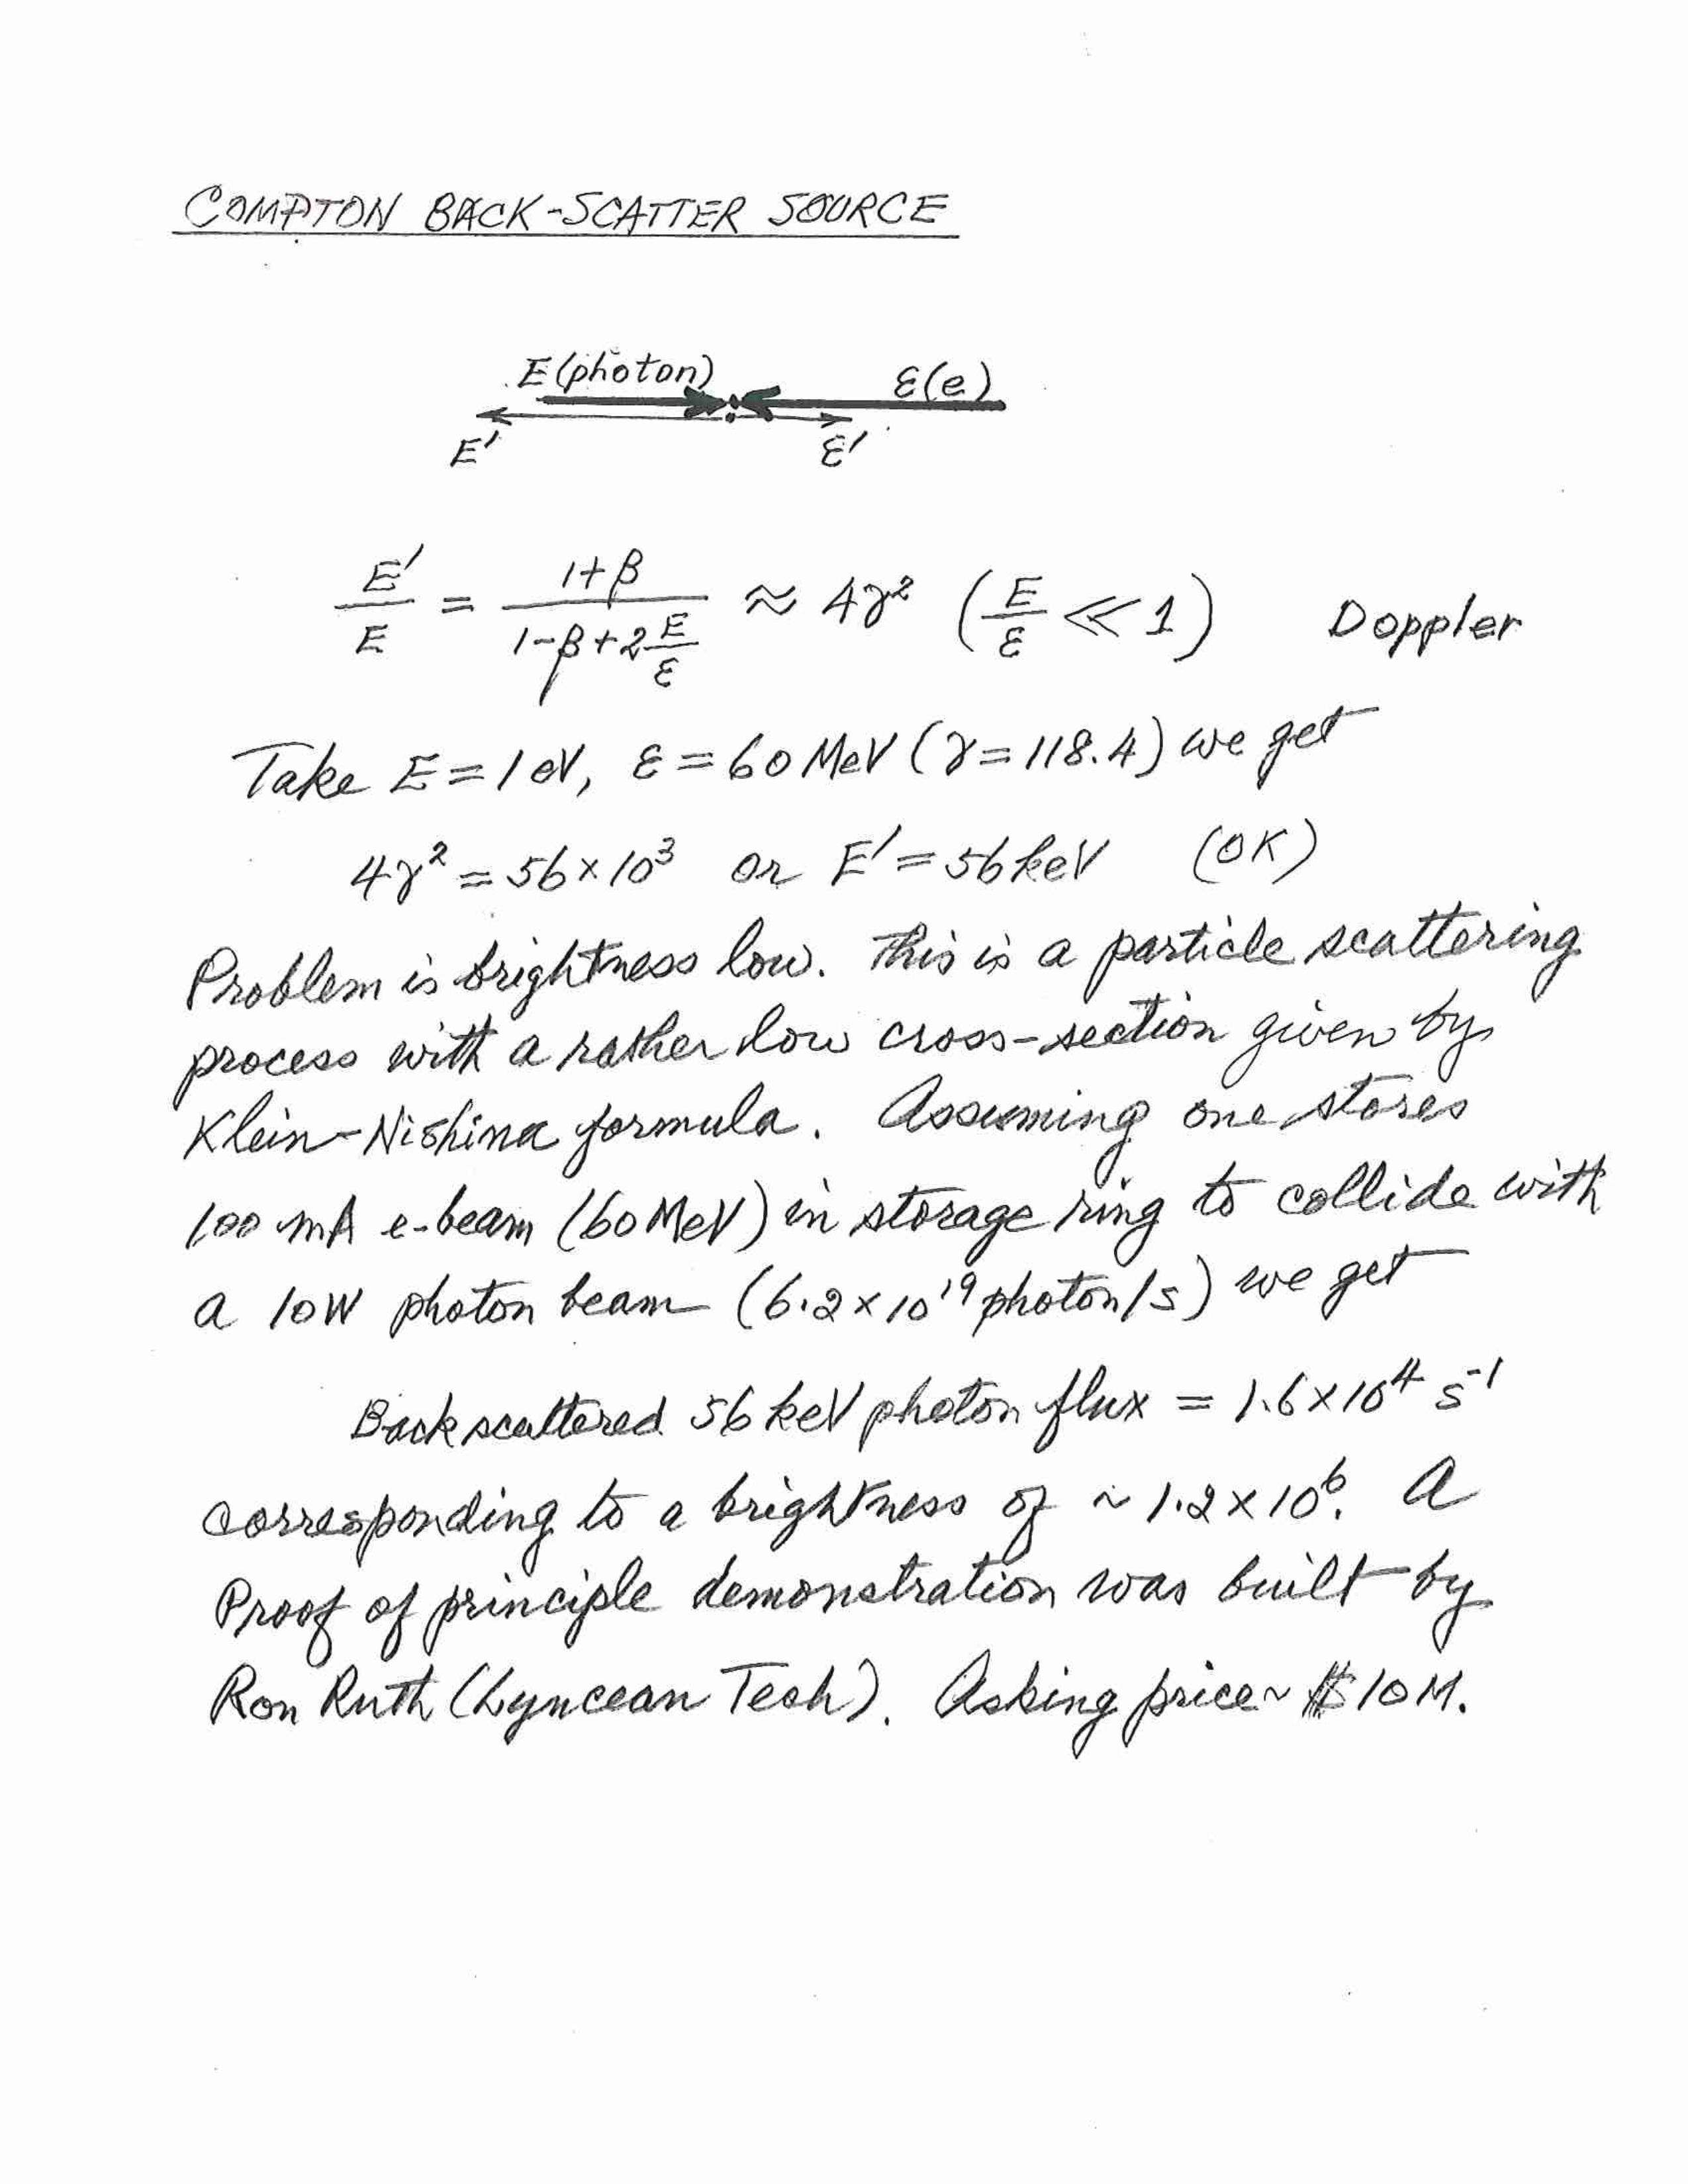 COMPTON BACK-SCATTER SOURCE
E(photon) ε(e)
E' ε'
E'/E = (1+β)/(1-β+2 E/ε) ≈ 4γ² (E/ε ≪ 1) Doppler
Take E = 1 eV, ε = 60 MeV (γ = 118.4) we get
4γ² = 56×10³ or E' = 56 keV (OK)
Problem is brightness low. This is a particle scattering
process with a rather low cross-section given by
Klein-Nishina formula. Assuming one stores
100 mA e-beam (60 MeV) in storage ring to collide with
a 10W photon beam (6.2×10¹⁹ photon/s) we get
Backscattered 56 keV photon flux = 1.6×10⁴ s⁻¹
corresponding to a brightness of ~ 1.2×10⁶. A
Proof of principle demonstration was built by
Ron Ruth (Lyncean Tech). Asking price ~ $10M.